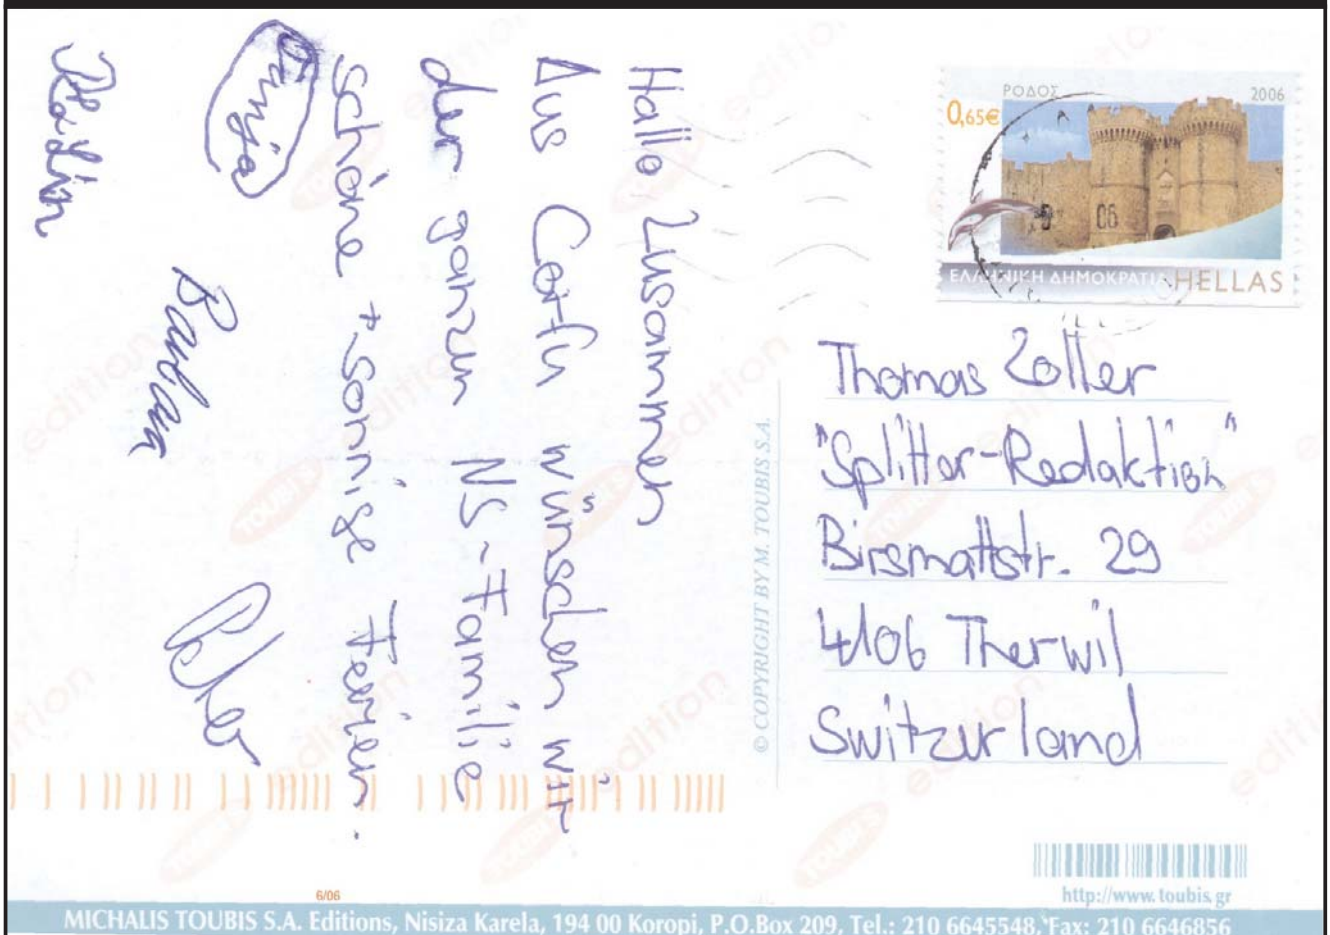 Hallo Zusammen
Aus Corfu wünschen wir
der ganzen NS-Familie
schöne + sonnige Ferien.
Tanja
Barbara
ΡΟΔΟΣ
2006
0,65€
ΕΛΛΗΝΙΚΗ ΔΗΜΟΚΡΑΤΙΑ HELLAS
Thomas Zoller
"Splitter-Redaktion"
Birsmattstr. 29
4106 Therwil
Switzerland
© COPYRIGHT BY M. TOUBIS S.A.
http://www.toubis.gr
6/06
MICHALIS TOUBIS S.A. Editions, Nisiza Karela, 194 00 Koropi, P.O.Box 209, Tel.: 210 6645548, Fax: 210 6646856